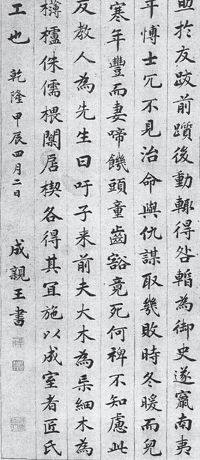 助於友跋前躓後動輒得咎暫為御史遂竄南夷
年博士冗不見治命與仇謀取幾敗時冬暖而兒
寒年豐而妻啼饑頭童齒豁竟死何裨不知慮此
反教人為先生曰吁子来前夫大木為杗細木為
欂櫨侏儒椳闑扂楔各得其宜施以成室者匠氏
工也 乾隆甲辰四月二日 成親王書